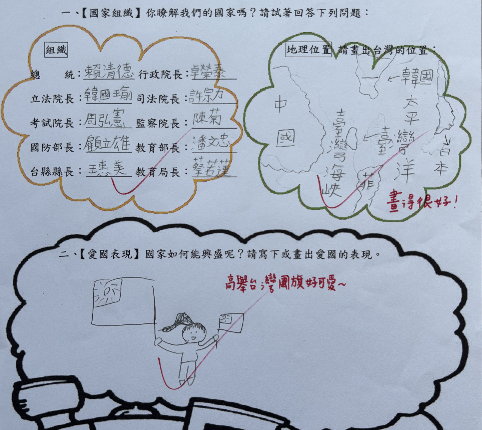 一、【國家組織】你瞭解我們的國家嗎？請試著回答下列問題：
組織
總　統：賴清德 行政院長：卓榮泰
立法院長：韓國瑜 司法院長：許宗力
考試院長：周弘憲 監察院長：陳菊
國防部長：顧立雄 教育部長：潘文忠
台縣縣長：王惠美 教育局長：蔡若蓮
地理位置 請畫出台灣的位置：
中國
韓國
太平洋
日本
臺灣海峽
臺灣
菲
畫得很好！
二、【愛國表現】國家如何能興盛呢？請寫下或畫出愛國的表現。
高舉台灣國旗好可愛~